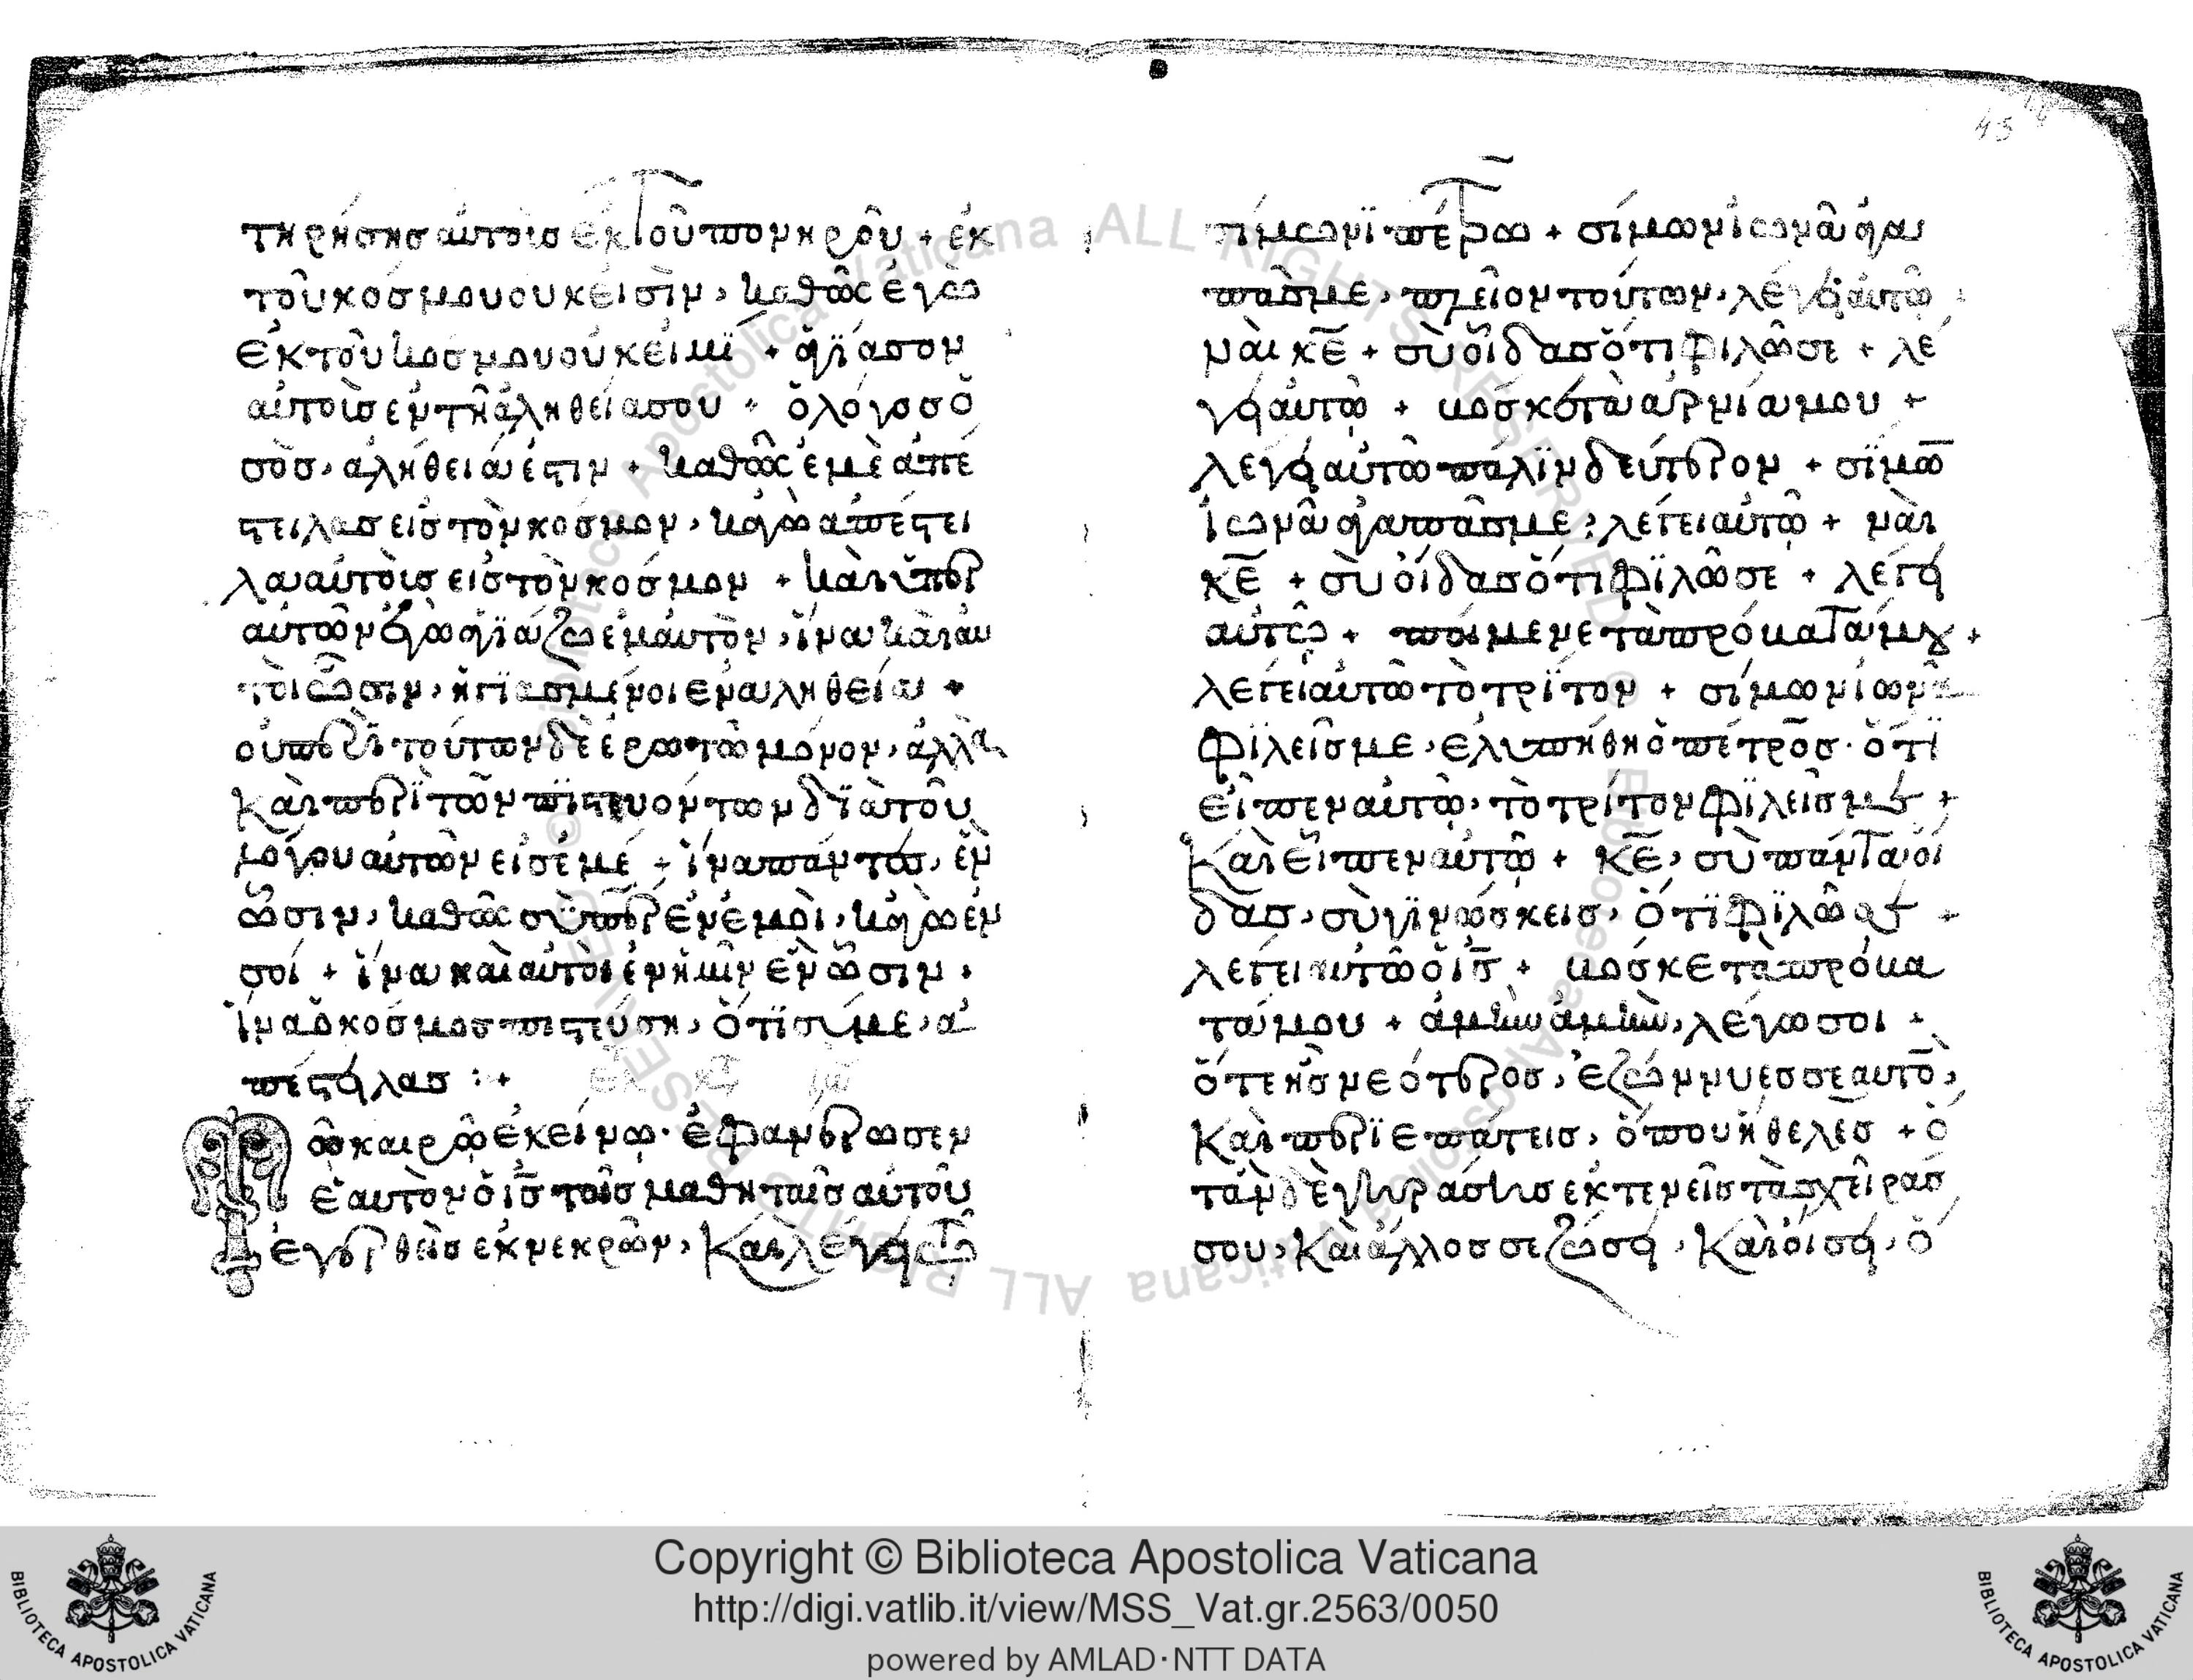 τηρήσησ αὐτοὺσ ἐκ τοῦ πονηροῦ + ἐκ
τοῦ κόσμου οὐκ εἰσὶν, καθὼς ἐγὼ
ἐκ τοῦ κόσμου οὐκ εἰμϊ + ἁγϊάσον
αὐτοὺσ ἐν τῆ ἀληθεία σου + ὁ λόγοσ ὁ
σὸσ, ἀλήθεια ἐστιν + καθὼς ἐμὲ ἀπέ
στειλασ εἰσ τὸν κόσμον, κἀγὼ ἀπέστει
λα αὐτοὺσ εἰσ τὸν κόσμον + καὶ ὑπὲρ
αὐτῶν ἐγὼ ἁγϊάζω ἐμαυτὸν, ἵνα καὶ αυ
τοὶ ὦσιν, ἡγϊασμένοι ἐν αληθεία +
οὐ περὶ τούτων δὲ ἐρωτῶ μόνον, ἀλλὰ
καὶ περϊ τῶν πϊστευόντων δϊὰ τοῦ
λόγου αὐτῶν εἰσ ἐμέ + ἵνα πάντεσ, ἓν
ὦσιν, καθὼς σὺ περ ἐν ἐμοὶ, κἀγὼ ἐν
σοί + ἵνα καὶ αὐτοὶ ἐν ἡμῖν ἓν ὦσιν,
ἵνα ὁ κόσμοσ πιστεύση, ὅτϊ σύ με, ἀ
πέστειλασ :+
Τῶ καιρῶ ἐκείνω· ἐφανέρωσεν
ἑαυτὸν ὁ ισ̅ τοῖσ μαθηταῖσ αὐτοῦ
ἐγερθεὶσ ἐκ νεκρῶν, καὶ λέγει τῶ
σίμωνϊ πέτρω + σίμων ἰωνᾶ ἀγα
πᾶσ με, πλεῖον τούτων, λέγει αὐτῶ
ναὶ κε̅ + σὺ οἶδασ ὅτι φιλῶ σε + λέ
γει αὐτῶ + βόσκε τὰ ἀρνία μου +
λέγει αὐτῶ πάλϊν δεύτερον + σϊμω̅
ἰωνᾶ ἀγαπᾶσ με, λέγει αὐτῶ + ναὶ
κε̅ + σὺ οἶδασ ὅτι φϊλῶ σε + λέγει
αὐτῶ + ποίμενε τὰ πρόβατά μου +
λέγει αὐτῶ τὸ τρϊτον + σίμων ἰωνᾶ
φϊλεῖσ με, ελυπήθη ὁ πέτροσ· ὅτϊ
εἶπεν αὐτῶ, τὸ τρίτον φϊλεῖσ με +
καὶ εἶπεν αὐτῶ + κε̅, σὺ πάντα οἶ
δασ, σὺ γϊνώσκεισ, ὅτϊ φϊλῶ σε +
λέγει αυτῶ ὁ ισ̅ + βόσκε τὰ πρόβα
τά μου + ἀμὴν ἀμὴν, λέγω σοι +
ὅτε ἦσ νεότεροσ, ἐζώννυεσ σεαυτὸ̅,
καὶ περϊεπάτεισ, ὅπου ἤθελεσ + ὅ
ταν δὲ γηράσησ ἐκτενεῖσ τὰσ χεῖρασ
σου, καὶ ἄλλοσ σε ζώσει, καὶ οἴσει, ὅ